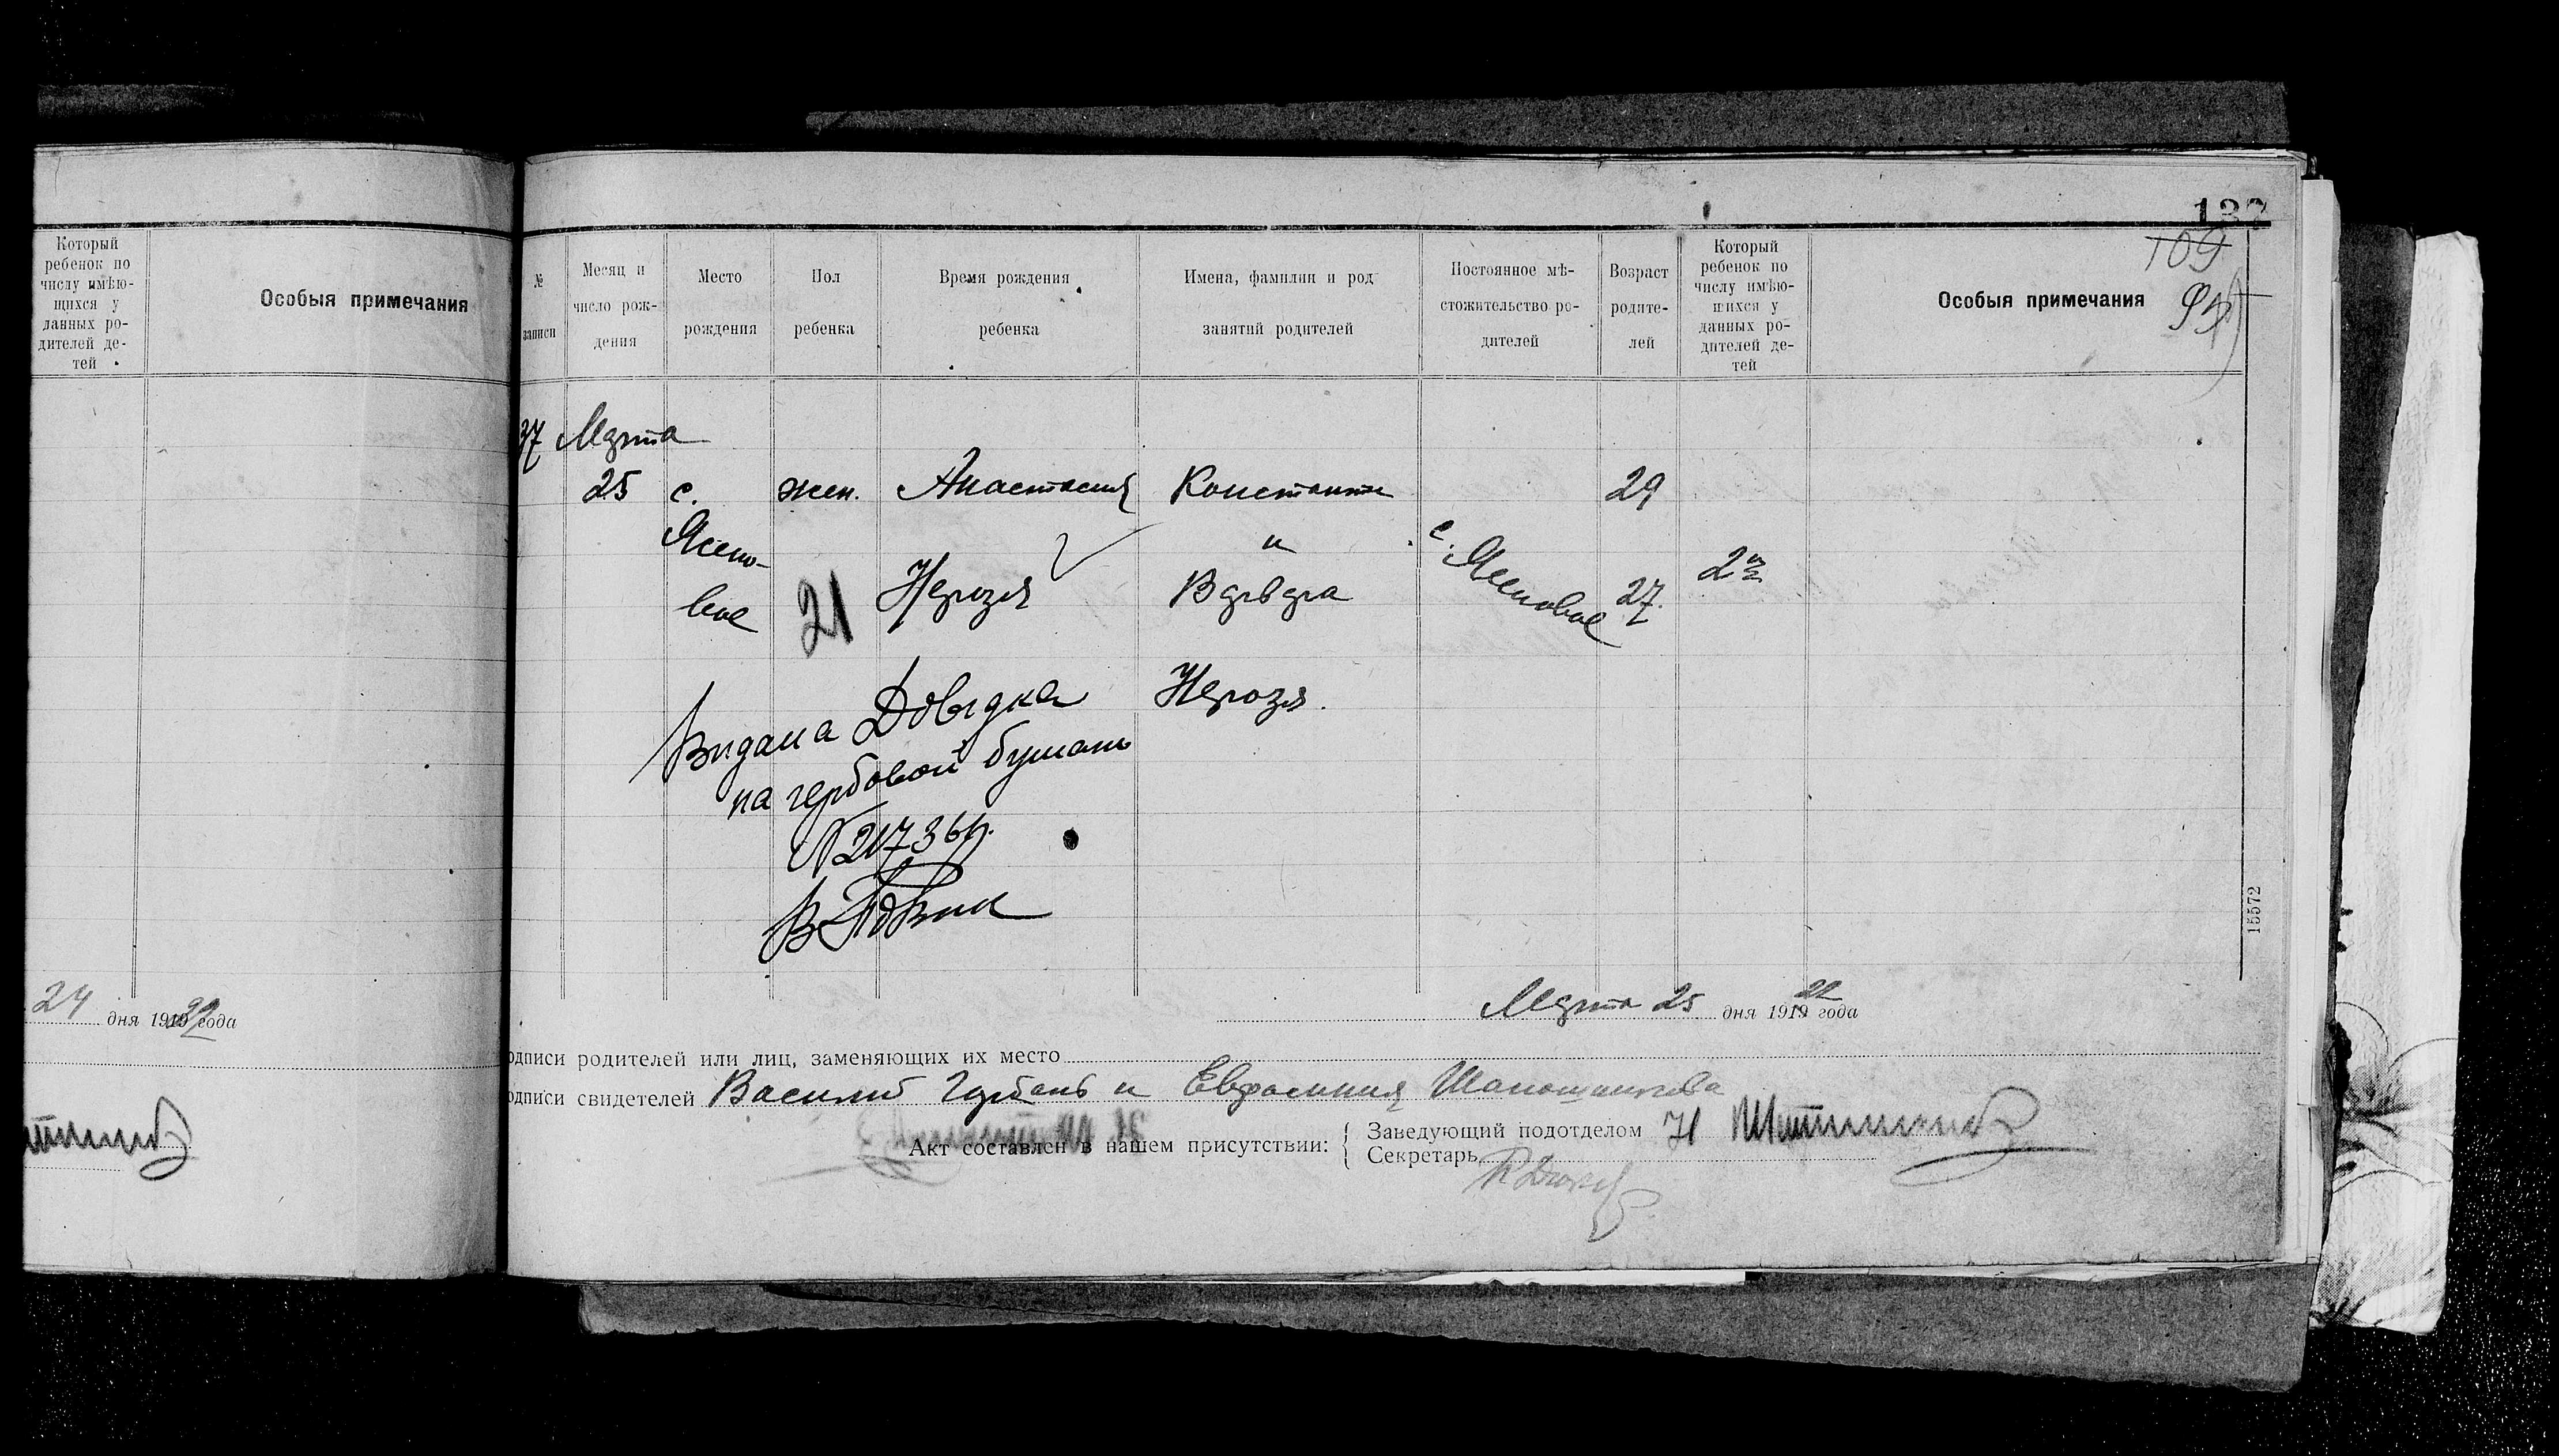 Который
ребенок по
числу имѣю-
щихся у
данных ро-
дителей де-
тей
Особыя примечания
24 дня 1919 года
132
109
№
записи
Месяц и
число рож-
дения
Место
рождения
Пол
ребенка
Время рождения
ребенка
Имена, фамилии и род
занятий родителей
Постоянное мѣ-
стожительство ро-
дителей
Возраст
родите-
лей
Который
ребенок по
числу имѣю-
щихся у
данных ро-
дителей де-
тей
Особыя примечания
37 Марта
25 с. жен. Анастасия Константин 29
Ясено-
вое
21
Нерозя
и
Варвара
с. Ясеновое
27.
2й
Нерозя.
Видана Довідка
на гербовой бумань
15572
Марта 25 дня 1919 22 года
одписи родителей или лиц, заменяющих их место
одписи свидетелей Василий Гарбань и Евфросиния Шапошникова
Акт составлен в нашем присутствии:
Заведующий подотделом
Секретарь